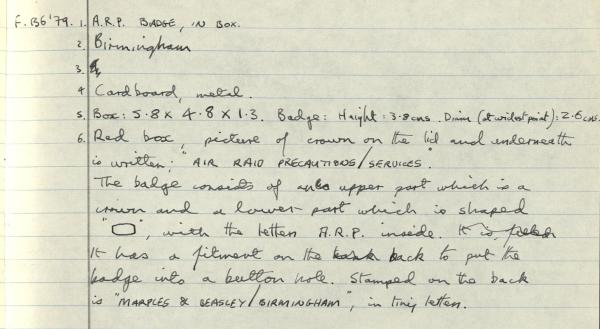 F. B6'79. 1. A.R.P. BADGE, IN BOX.
2. Birmingham
3.
4 Cardboard, metal.
5. Box: 5.8 x 4.8 x 1.3. Badge: Height: 3.8cms. Diam (at widest point): 2.6cms.
6. Red box, picture of crown on the lid and underneath
is written; "AIR RAID PRECAUTIONS/SERVICES".
The badge consists of an upper part which is a
crown and a lower part which is shaped
" ", with the letters A.R.P. inside. It is
It has a fitment on the back to put the
badge into a button hole. Stamped on the back
is "MARPLES & BEASLEY/BIRMINGHAM", in tiny letters.